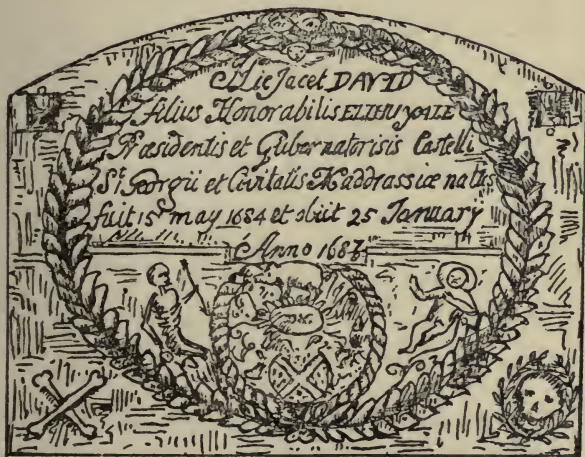 Hic Jacet DAVID
Filius Honorabilis ELIHU YALE
Præsidentis et Gubernatorisis Castelli
St. Georgii et Civitatis Maddrassiæ natus
fuit 15 may 1684 et obiit 25 January
Anno 1687